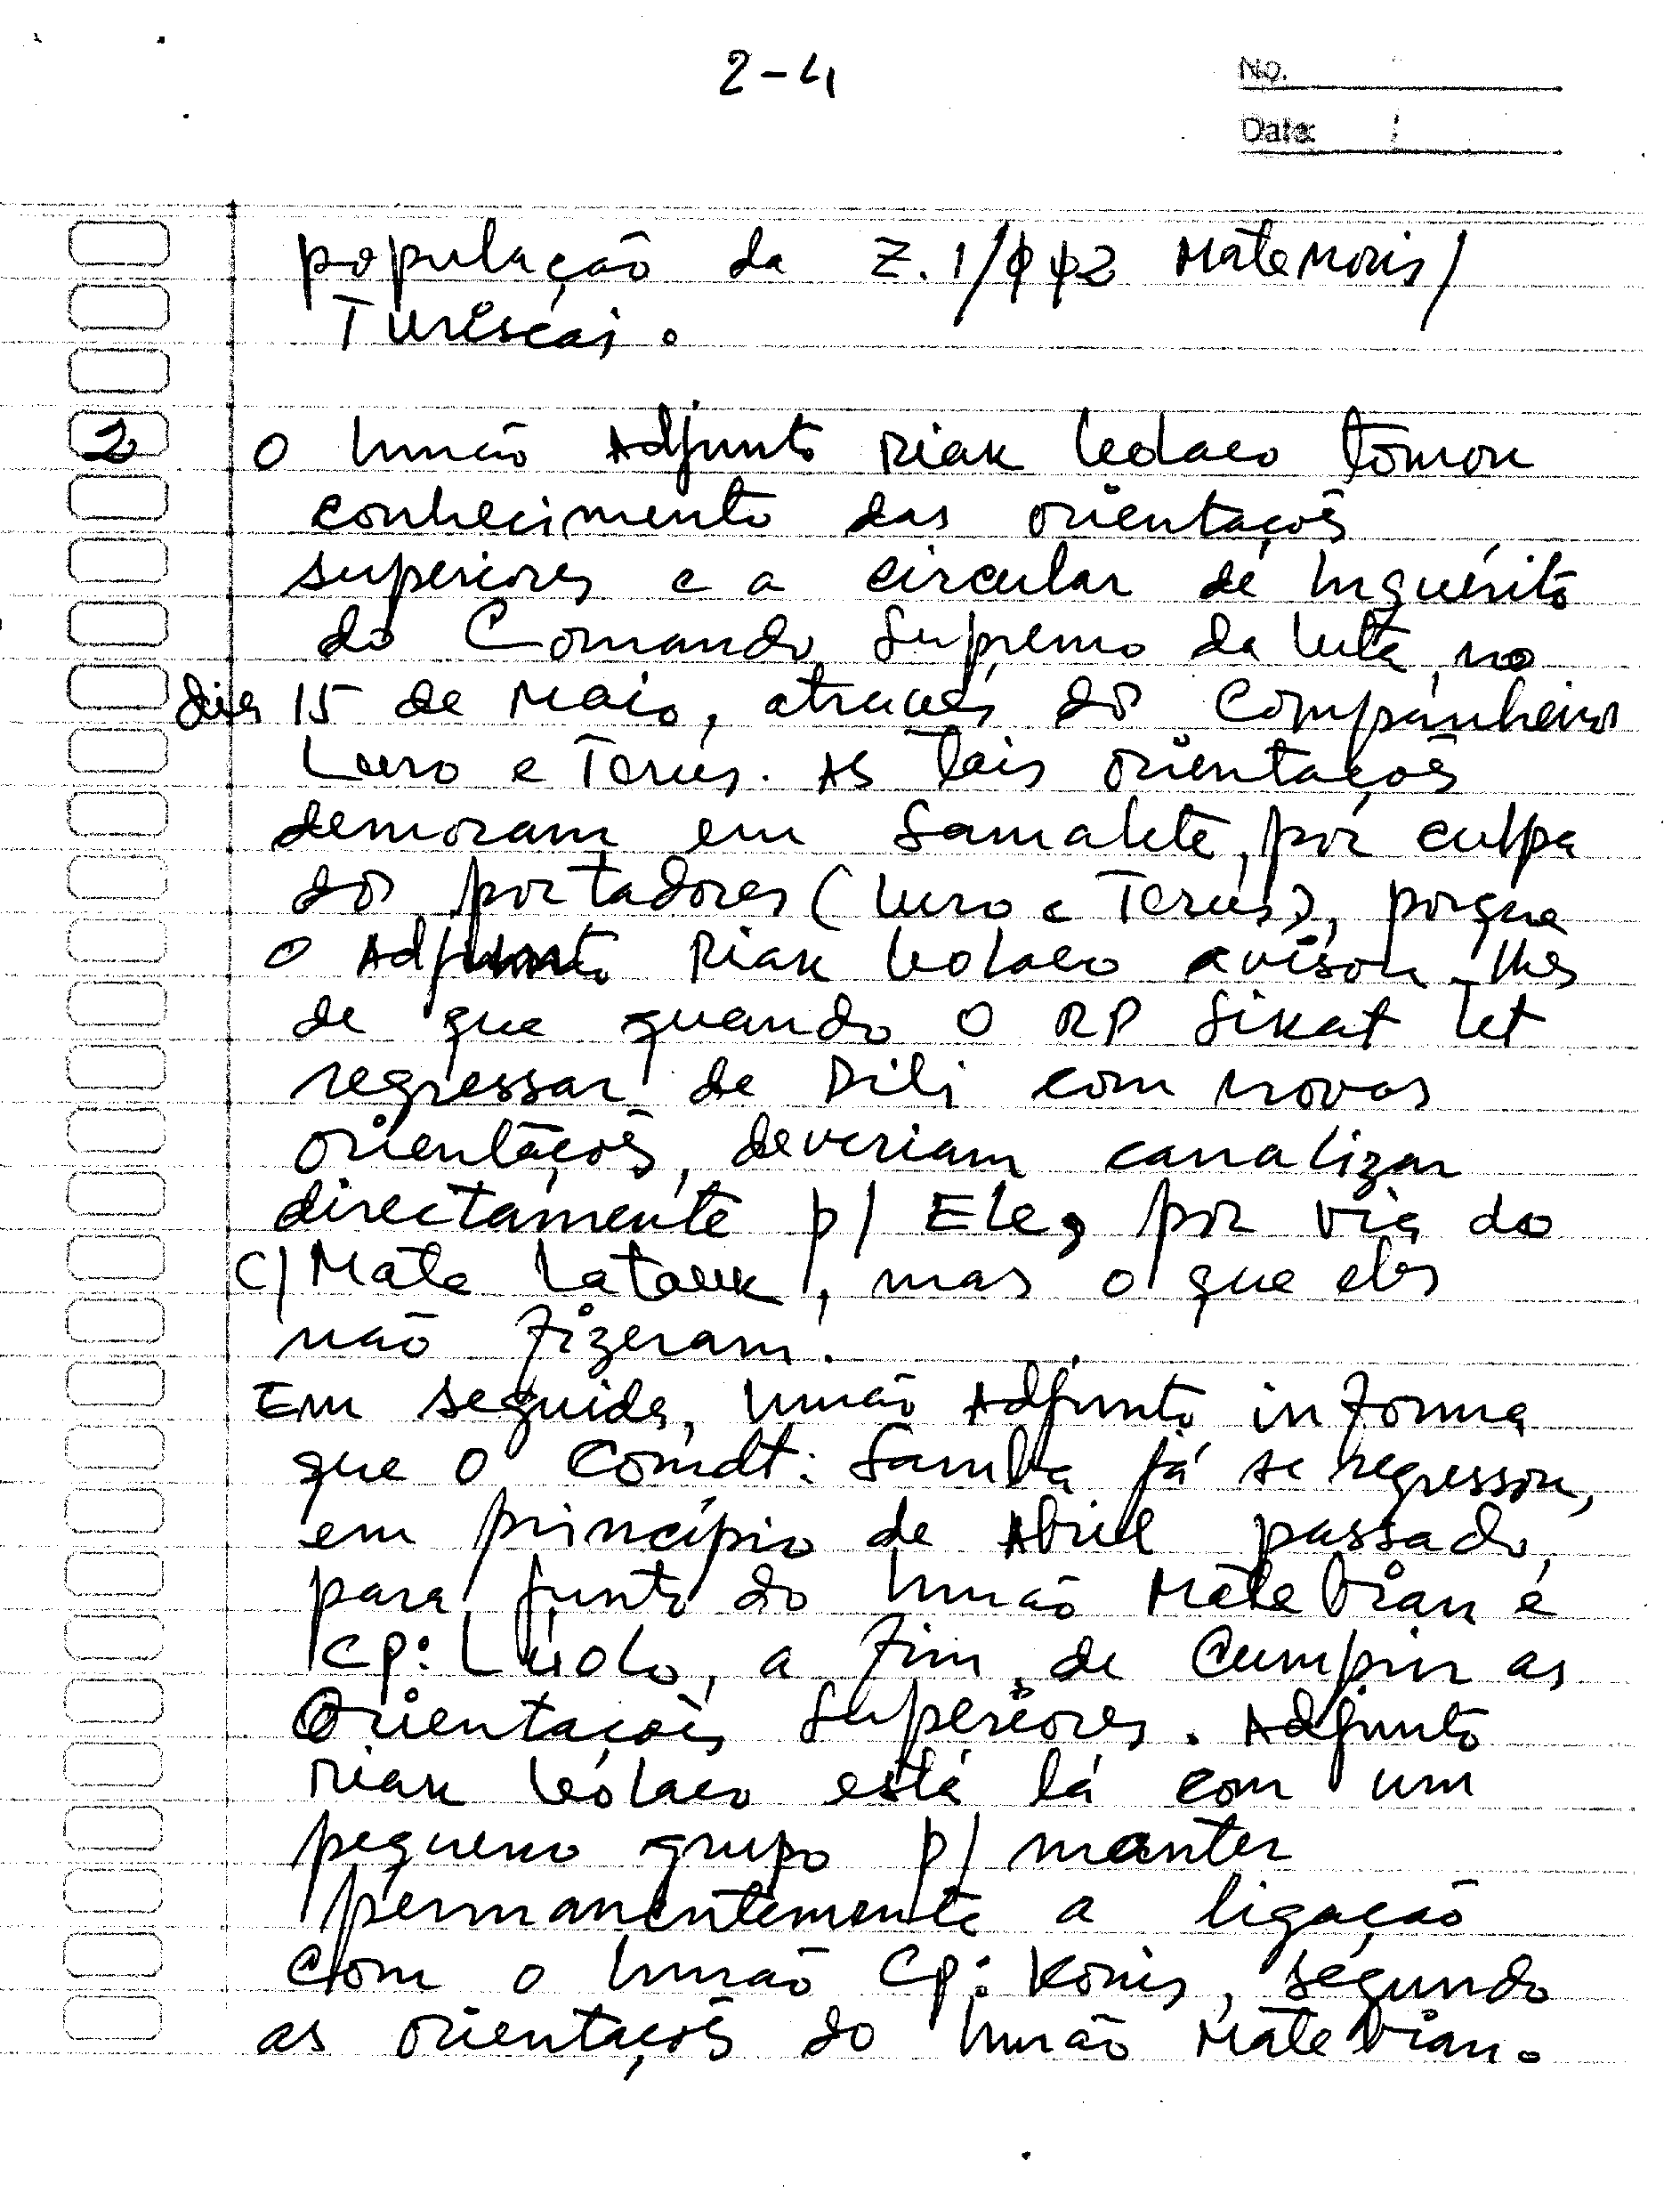 2-4
No.
Date:
população da Z.1/ØØ2 Matenoris/
Turiscai.
2 O Irmão Adjunto Riak Leolaco tomou
conhecimento das orientaçoẽs
superiores e a circular de Inquérito
do Comando Supremo da Luta, no
dia 15 de Maio, através dos Companheiros
Luro e Terus. As tais orientaçoẽs
demoram em Samalete, por culpa
dos portadores (Luro e Terus), porque
O Adjunto Riak Leolaco avisou-lhes
de que quando O RP Sikat Let
regressar de Dili com novas
orientaçoẽs, deveriam canalizar
directamente p/ Ele, por via do
C/ Mate Latauk, mas o que eles
não fizeram.
Em seguida, Irmão Adjunto informa
que o Comdt: Samba já se regressou,
em princípio de Abril passado,
para junto do Irmão Mate Bian e
Cp: Lúolo, a fim de Cumprir as
Orientaçoẽs Superiores. Adjunto
Riak Leolaco está lá com um
pequeno grupo p/ manter
permanentemente a ligação
com o Irmão Cp: Konis, segundo
as orientaçoẽs do Irmão Mate Bian.